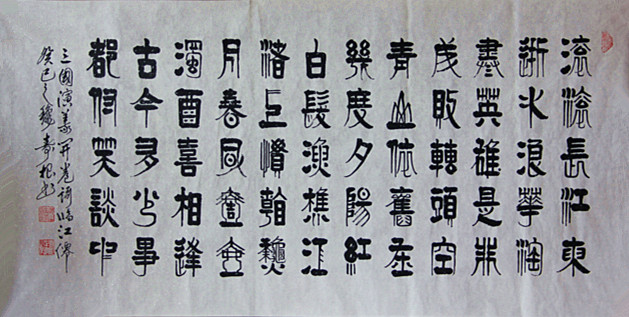 滾滾長江東
逝水浪華淘
盡英雄是非
成敗轉頭空
青山依舊在
幾度夕陽紅
白髮漁樵江
渚上慣看秋
月春風壹壺
濁酉喜相逢
古今多少事
都付笑談中
三國演義開卷詞臨江僊
癸巳之穐壽根書